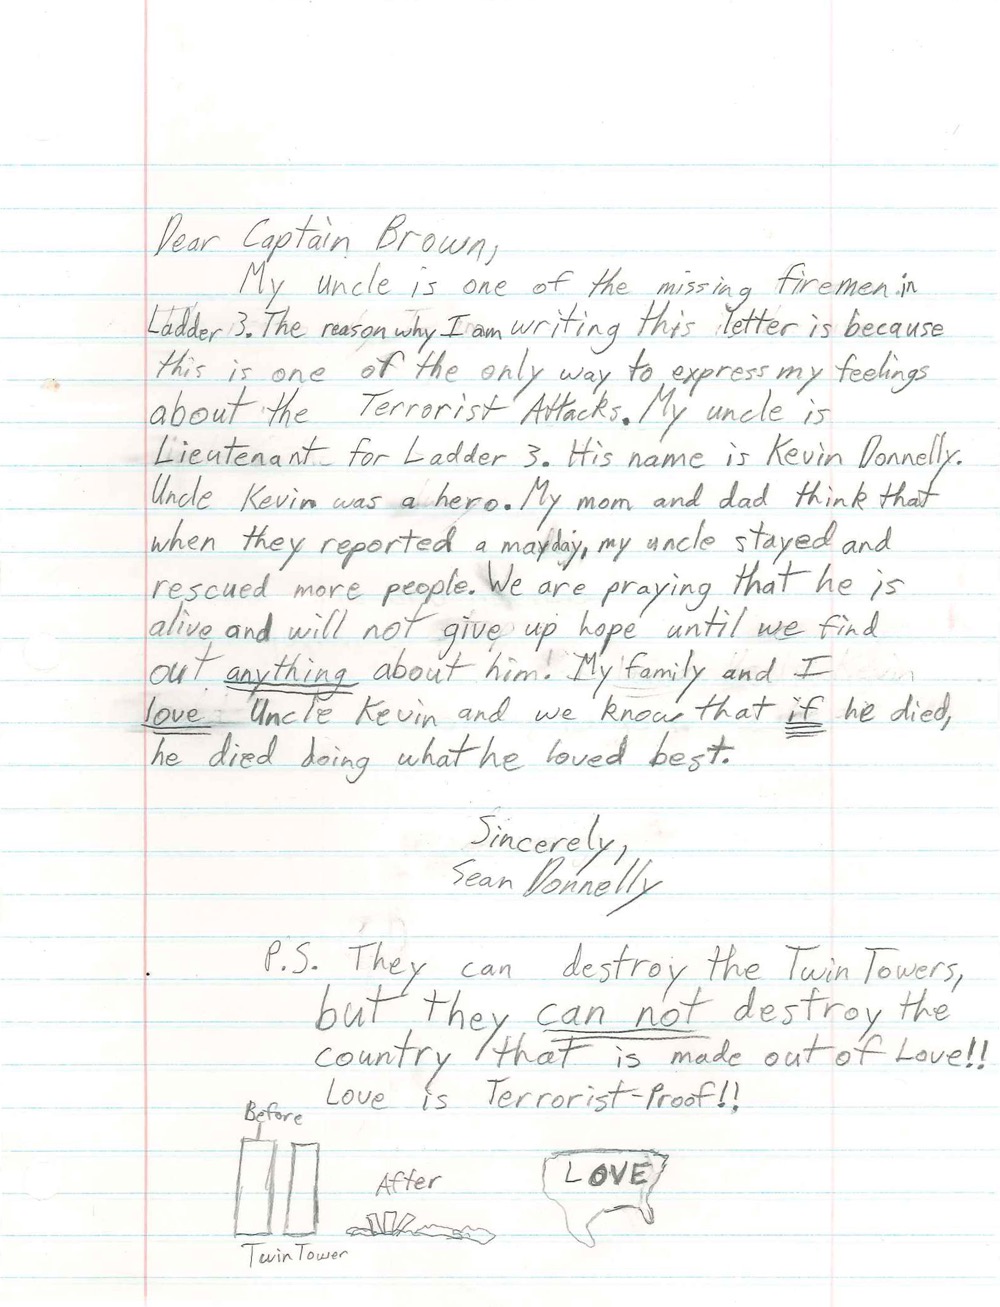 Dear Captain Brown,
My uncle is one of the missing firemen in
Ladder 3. The reason why I am writing this letter is because
this is one of the only way to express my feelings
about the Terrorist Attacks. My uncle is
Lieutenant for Ladder 3. His name is Kevin Donnelly.
Uncle Kevin was a hero. My mom and dad think that
when they reported a mayday, my uncle stayed and
rescued more people. We are praying that he is
alive and will not give up hope until we find
out anything about him! My family and I
love Uncle Kevin and we know that if he died,
he died doing what he loved best.
Sincerely,
Sean Donnelly
P.S. They can destroy the Twin Towers,
but they can not destroy the
country that is made out of Love!!
Love is Terrorist-Proof!!
Before
After
LOVE
Twin Tower